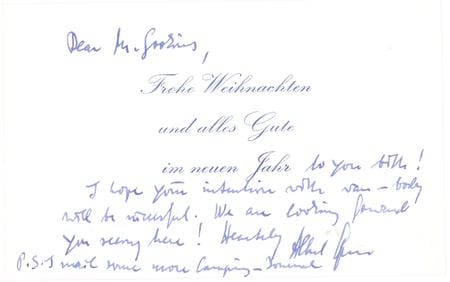 Dear Mr. Gookins,
Frohe Weihnachten
und alles Gute
im neuen Jahr to you both!
I hope your intention with van-body
will be successful. We are looking forward
you seeing here! Heartely Albert
P.S. I mail some more Camping-Journal